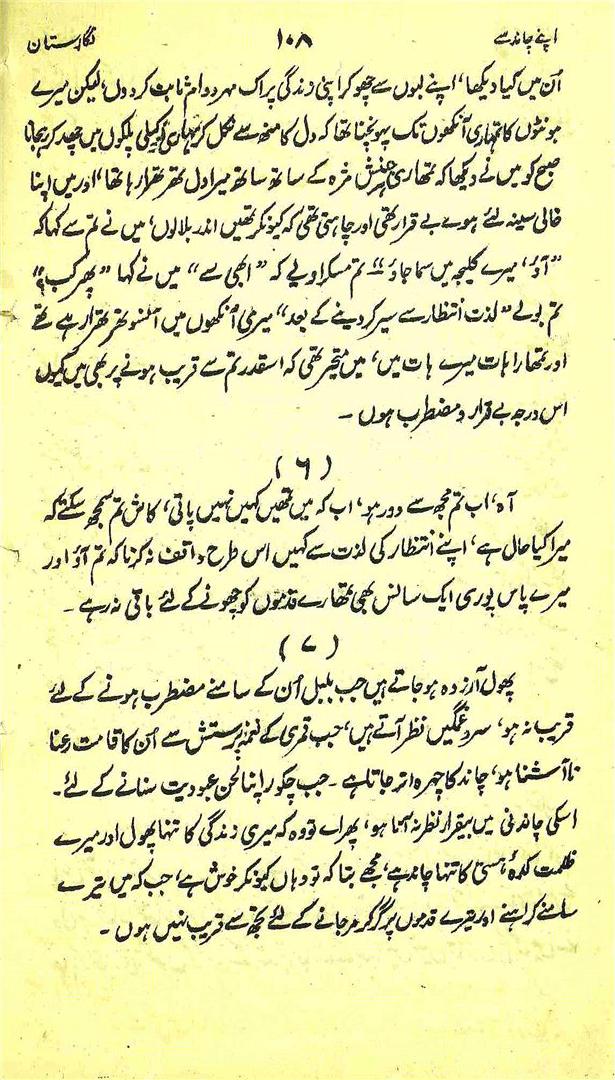 اپنے چاند سے ۱۰۸ نگارستان
اُن میں کیا دیکھا، اپنے لبوں سے چھو کر اپنی زندگی پر اک مہر دوام ثابت کر دوں، لیکن میرے
ہونٹوں کا تمہاری آنکھوں تک پہونچنا تھا کہ دل کا منھ سے نکل کر تمہاری نکیلی پلکوں میں چھد کر رہجانا
صبح کو میں نے دیکھا کہ تمھاری ہر جنبش مژہ کے ساتھ ساتھ میرا دل تھر تھرا رہا تھا، اور میں اپنا
خالی سینہ لئے ہوے بے قرار تھی اور چاہتی تھی کہ کیونکر تمھیں اندر بلا لوں، میں نے تم سے کہا کہ
"آؤ، میرے کلیجہ میں سما جاؤ"۔ تم مسکرا دیے کہ "ابھی سے" میں نے کہا "پھر کب؟"
تم بولے "لذت انتظار سے سیر کر دینے کے بعد" میری آنکھوں میں آنسو تھر تھرا رہے تھے
اور تمھارا ہات میرے ہات میں، میں متحیر تھی کہ اسقدر تم سے قریب ہونے پر بھی میں کیوں
اس درجہ بے قرار و مضطرب ہوں ۔
(۶)
آہ، اب تم مجھ سے دور ہو، اب کہ میں تمھیں کہیں نہیں پاتی، کاش تم سمجھ سکتے کہ
میرا کیا حال ہے، اپنے انتظار کی لذت سے کہیں اس طرح واقف نہ کرنا کہ تم آؤ اور
میرے پاس پوری ایک سانس بھی تمھارے قدموں کو چھونے کے لئے باقی نہ رہے ۔
(۷)
پھول آزردہ ہو جاتے ہیں جب بلبل اُن کے سامنے مضطرب ہونے کے لئے
قریب نہ ہو، سرو غمگیں نظر آتے ہیں، جب قمری کے نغمہ پرستش سے اُن کا قامت رعنا
نا آشنا ہو، چاند کا چہرہ اتر جاتا ہے ۔ جب چکور اپنا لحن عبودیت سنانے کے لئے۔
اسکی چاندنی میں بیقرار نظر نہ آتا ہو، پھر اے تو وہ کہ میری زندگی کا تنہا پھول اور میرے
ظلمت کدۂ ہستی کا تنہا چاند ہے، مجھے بتا کہ تو وہاں کیونکر خوش ہے، جب کہ میں تیرے
سامنے کراہنے اور تیرے قدموں پر گر کر مر جانے کے لئے تجھ سے قریب نہیں ہوں ۔